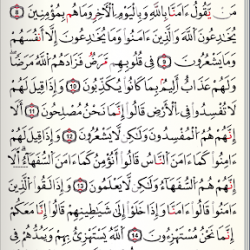 مَن يَقُولُ ءَامَنَّا بِٱللَّهِ وَبِٱلْيَوْمِ ٱلْءَاخِرِ وَمَا هُم بِمُؤْمِنِينَ ٨
يُخَٰدِعُونَ ٱللَّهَ وَٱلَّذِينَ ءَامَنُوا۟ وَمَا يَخْدَعُونَ إِلَّآ أَنفُسَهُمْ
وَمَا يَشْعُرُونَ ٩ فِى قُلُوبِهِم مَّرَضٌ فَزَادَهُمُ ٱللَّهُ مَرَضًا
وَلَهُمْ عَذَابٌ أَلِيمٌۢ بِمَا كَانُوا۟ يَكْذِبُونَ ١٠ وَإِذَا قِيلَ لَهُمْ
لَا تُفْسِدُوا۟ فِى ٱلْأَرْضِ قَالُوٓا۟ إِنَّمَا نَحْنُ مُصْلِحُونَ ١١ أَلَآ
إِنَّهُمْ هُمُ ٱلْمُفْسِدُونَ وَلَٰكِن لَّا يَشْعُرُونَ ١٢ وَإِذَا قِيلَ لَهُمْ
ءَامِنُوا۟ كَمَآ ءَامَنَ ٱلنَّاسُ قَالُوٓا۟ أَنُؤْمِنُ كَمَآ ءَامَنَ ٱلسُّفَهَآءُ أَلَآ
إِنَّهُمْ هُمُ ٱلسُّفَهَآءُ وَلَٰكِن لَّا يَعْلَمُونَ ١٣ وَإِذَا لَقُوا۟ ٱلَّذِينَ
ءَامَنُوا۟ قَالُوٓا۟ ءَامَنَّا وَإِذَا خَلَوْا۟ إِلَىٰ شَيَٰطِينِهِمْ قَالُوٓا۟ إِنَّا مَعَكُمْ
إِنَّمَا نَحْنُ مُسْتَهْزِءُونَ ١٤ ٱللَّهُ يَسْتَهْزِئُ بِهِمْ وَيَمُدُّهُمْ فِى